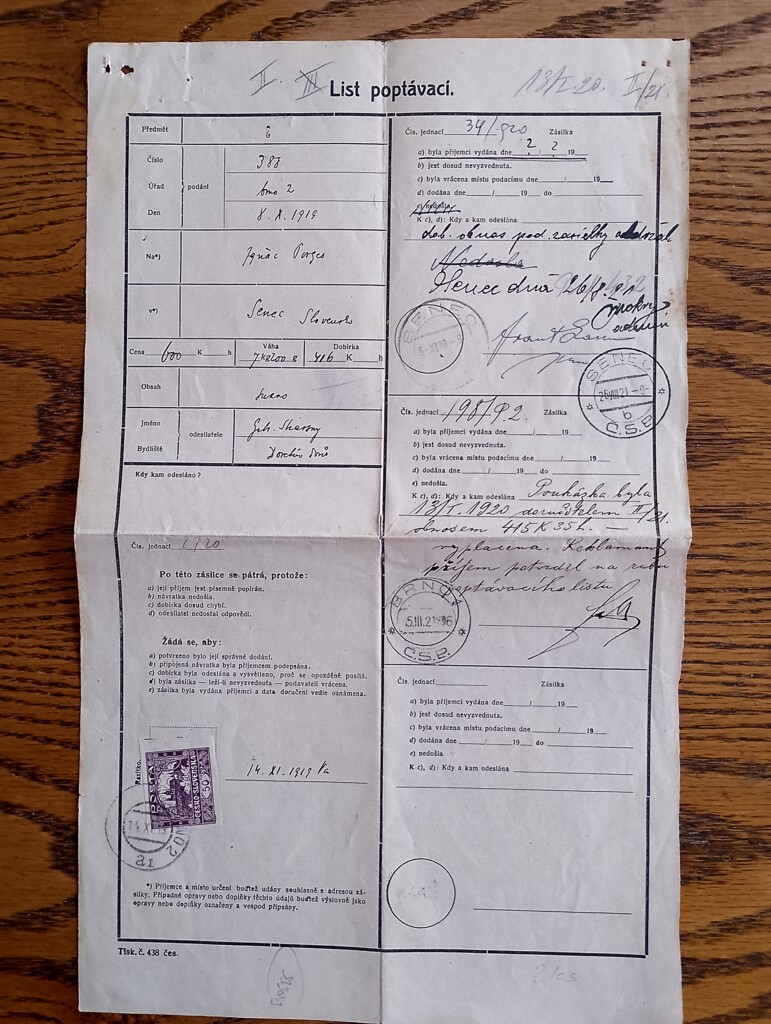 II. III List poptávací. 13/I. 20. II/21.
Předmět
Číslo 388
Úřad podání Brno 2
Den 8. X. 1919
Na*) Ignác Porges
v*) Senec Slovensko
Cena 600 K h Váha Dobírka 416 K h
Obsah
Jméno
Bydliště odesílatele
Kdy kam odesláno?
Čís. jednací 1/20
Po této zásilce se pátrá, protože:
a) její příjem jest písemně popírán.
b) návratka nedošla.
c) dobírka dosud chybí.
d) odesílatel nedostal odpovědi.
Žádá se, aby:
a) potvrzeno bylo její správné dodání.
b) připojená návratka byla příjemcem podepsána.
c) dobírka byla odeslána a vysvětleno, proč se opozděně posílá.
d) byla zásilka — leží-li nevyzvednuta — podavateli vrácena.
e) zásilka byla vydána příjemci a data doručení vedle oznámena.
Razítko.
POŠTA
ČESKO-SLOVENSKÁ
50
14. XI. 1919
*) Příjemce a místo určení buďtež udány souhlasně s adresou zá-
silky. Případné opravy nebo doplňky těchto údajů buďtež výslovně jako
opravy nebo doplňky označeny a vespod připsány.
Tisk. č. 438 čes.
Čís. jednací 34/920 Zásilka
a) byla příjemci vydána dne 2. / 2. 19
b) jest dosud nevyzvednuta.
c) byla vrácena místu podacímu dne / 19
d) dodána dne / 19 do
e) nedošla.
K c), d): Kdy a kam odeslána
dob. obnos pod. zásielky
Nedošla
Senec dňa 26/8. 21
SENEC
SENEC
26.VIII.21-9-
b
Č.S.P.
Čís. jednací 198/P.2. Zásilka
a) byla příjemci vydána dne / 19
b) jest dosud nevyzvednuta.
c) byla vrácena místu podacímu dne / 19
d) dodána dne / 19 do
e) nedošla.
K c), d): Kdy a kam odeslána Poukázka byla
13/I. 1920 doručitelem II/21.
obnosem 415 K 35 h. —
vyplacena. Reklamant
příjem potvrdil na rubu
poptávacího listu
BRNO
Č.S.P.
Čís. jednací Zásilka
a) byla příjemci vydána dne / 19
b) jest dosud nevyzvednuta.
c) byla vrácena místu podacímu dne / 19
d) dodána dne / 19 do
e) nedošla
K c), d): Kdy a kam odeslána